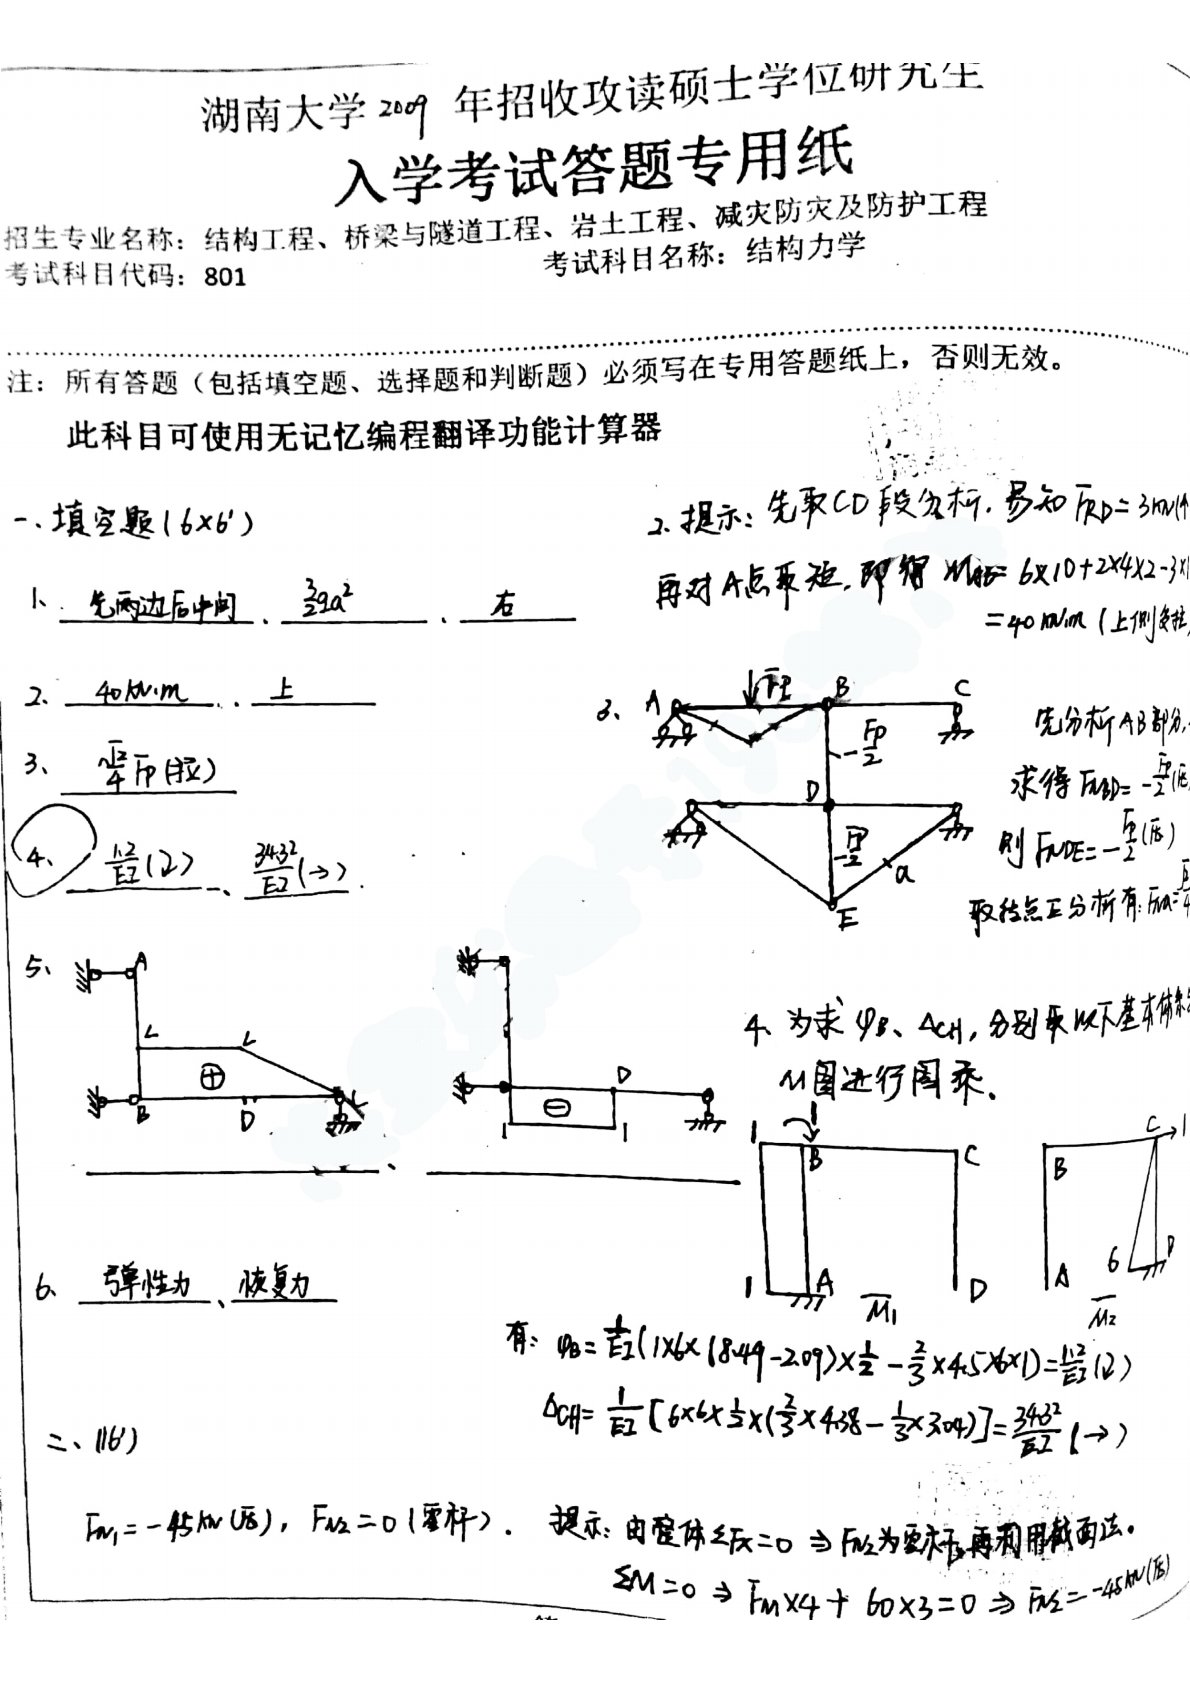 湖南大学2009年招收攻读硕士学位研究生
入学考试答题专用纸
招生专业名称：结构工程、桥梁与隧道工程、岩土工程、减灾防灾及防护工程
考试科目代码：801 考试科目名称：结构力学
注：所有答题（包括填空题、选择题和判断题）必须写在专用答题纸上，否则无效。
此科目可使用无记忆编程翻译功能计算器
一、填空题（6×6'）
1、先两边后中间、3/2 qa²、右
2、40kN·m、上
3、√2/4 FP（拉）
4、1.2/EI（2）、34.32/EI（→）
5、
A
L L
⊕
B D L
D
⊖
1 1
6、弹性力、恢复力
2、提示：先取CD段分析，易知FRD=3kN(↑
再对A点取矩，即得 6×10+2×4×2-3×1
=40kN·m（上侧受拉
3、A FP B C
-FP/2
D
FP/2
a
E
先分析AB部分，
求得FNBD=-FP/2（压
则FNDE=-FP/2（压）
取结点E分析有：FNa=
4、为求φB、ΔCH，分别取以下基本体系
M图进行图乘。
1 1 B C
1 A D
M̄1
B C 1
A 6 D
M̄2
有：φB=1/EI(1×6×(8.49-2.09)×1/2-2/3×4.5×6×1)=1.2/EI(2)
ΔCH=1/EI[6×6×1/2×(2/3×4.38-1/3×3.04)]=34.32/EI(→)
二、(16')
FN1=-45kN（压），FN2=0（零杆）. 提示：由整体ΣFx=0⇒FN2为零杆，再利用截面法。
ΣM=0⇒FN1×4+60×3=0⇒ =-45kN(压)